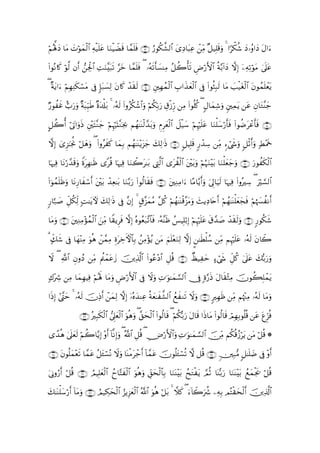 ءَالَ دَاوُۥدَ شُكْرًا ۚ وَقَلِيلٌ مِّنْ عِبَادِىَ ٱلشَّكُورُ ﴿١٣﴾ فَلَمَّا قَضَيْنَا عَلَيْهِ ٱلْمَوْتَ مَا دَلَّهُمْ
عَلَىٰ مَوْتِهِۦٓ إِلَّا دَآبَّةُ ٱلْأَرْضِ تَأْكُلُ مِنسَأَتَهُۥ ۖ فَلَمَّا خَرَّ تَبَيَّنَتِ ٱلْجِنُّ أَن لَّوْ كَانُوا۟
يَعْلَمُونَ ٱلْغَيْبَ مَا لَبِثُوا۟ فِى ٱلْعَذَابِ ٱلْمُهِينِ ﴿١٤﴾ لَقَدْ كَانَ لِسَبَإٍ فِى مَسْكَنِهِمْ ءَايَةٌ ۖ
جَنَّتَانِ عَن يَمِينٍ وَشِمَالٍ ۖ كُلُوا۟ مِن رِّزْقِ رَبِّكُمْ وَٱشْكُرُوا۟ لَهُۥ ۚ بَلْدَةٌ طَيِّبَةٌ وَرَبٌّ غَفُورٌ
﴿١٥﴾ فَأَعْرَضُوا۟ فَأَرْسَلْنَا عَلَيْهِمْ سَيْلَ ٱلْعَرِمِ وَبَدَّلْنَٰهُم بِجَنَّتَيْهِمْ جَنَّتَيْنِ ذَوَاتَىْ أُكُلٍ
خَمْطٍ وَأَثْلٍ وَشَىْءٍ مِّن سِدْرٍ قَلِيلٍ ﴿١٦﴾ ذَٰلِكَ جَزَيْنَٰهُم بِمَا كَفَرُوا۟ ۖ وَهَلْ نُجَٰزِىٓ إِلَّا
ٱلْكَفُورَ ﴿١٧﴾ وَجَعَلْنَا بَيْنَهُمْ وَبَيْنَ ٱلْقُرَى ٱلَّتِى بَٰرَكْنَا فِيهَا قُرًى ظَٰهِرَةً وَقَدَّرْنَا فِيهَا
ٱلسَّيْرَ ۖ سِيرُوا۟ فِيهَا لَيَالِىَ وَأَيَّامًا ءَامِنِينَ ﴿١٨﴾ فَقَالُوا۟ رَبَّنَا بَٰعِدْ بَيْنَ أَسْفَارِنَا وَظَلَمُوٓا۟
أَنفُسَهُمْ فَجَعَلْنَٰهُمْ أَحَادِيثَ وَمَزَّقْنَٰهُمْ كُلَّ مُمَزَّقٍ ۚ إِنَّ فِى ذَٰلِكَ لَءَايَٰتٍ لِّكُلِّ صَبَّارٍ
شَكُورٍ ﴿١٩﴾ وَلَقَدْ صَدَّقَ عَلَيْهِمْ إِبْلِيسُ ظَنَّهُۥ فَٱتَّبَعُوهُ إِلَّا فَرِيقًا مِّنَ ٱلْمُؤْمِنِينَ ﴿٢٠﴾ وَمَا
كَانَ لَهُۥ عَلَيْهِم مِّن سُلْطَٰنٍ إِلَّا لِنَعْلَمَ مَن يُؤْمِنُ بِٱلْءَاخِرَةِ مِمَّنْ هُوَ مِنْهَا فِى شَكٍّ ۗ
وَرَبُّكَ عَلَىٰ كُلِّ شَىْءٍ حَفِيظٌ ﴿٢١﴾ قُلِ ٱدْعُوا۟ ٱلَّذِينَ زَعَمْتُم مِّن دُونِ ٱللَّهِ ۖ لَا
يَمْلِكُونَ مِثْقَالَ ذَرَّةٍ فِى ٱلسَّمَٰوَٰتِ وَلَا فِى ٱلْأَرْضِ وَمَا لَهُمْ فِيهِمَا مِن شِرْكٍ
وَمَا لَهُۥ مِنْهُم مِّن ظَهِيرٍ ﴿٢٢﴾ وَلَا تَنفَعُ ٱلشَّفَٰعَةُ عِندَهُۥٓ إِلَّا لِمَنْ أَذِنَ لَهُۥ ۚ حَتَّىٰٓ إِذَا
فُزِّعَ عَن قُلُوبِهِمْ قَالُوا۟ مَاذَا قَالَ رَبُّكُمْ ۖ قَالُوا۟ ٱلْحَقَّ ۖ وَهُوَ ٱلْعَلِىُّ ٱلْكَبِيرُ ﴿٢٣﴾
۞ قُلْ مَن يَرْزُقُكُم مِّنَ ٱلسَّمَٰوَٰتِ وَٱلْأَرْضِ ۖ قُلِ ٱللَّهُ ۖ وَإِنَّآ أَوْ إِيَّاكُمْ لَعَلَىٰ هُدًى
أَوْ فِى ضَلَٰلٍ مُّبِينٍ ﴿٢٤﴾ قُل لَّا تُسْـَٔلُونَ عَمَّآ أَجْرَمْنَا وَلَا نُسْـَٔلُ عَمَّا تَعْمَلُونَ ﴿٢٥﴾
قُلْ يَجْمَعُ بَيْنَنَا رَبُّنَا ثُمَّ يَفْتَحُ بَيْنَنَا بِٱلْحَقِّ وَهُوَ ٱلْفَتَّاحُ ٱلْعَلِيمُ ﴿٢٦﴾ قُلْ أَرُونِىَ
ٱلَّذِينَ أَلْحَقْتُم بِهِۦ شُرَكَآءَ ۖ كَلَّا ۚ بَلْ هُوَ ٱللَّهُ ٱلْعَزِيزُ ٱلْحَكِيمُ ﴿٢٧﴾ وَمَآ أَرْسَلْنَٰكَ